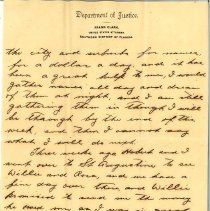 Department of Justice.
UNITED STATES ATTORNEY
SOUTHERN DISTRICT OF FLORIDA
the city and suburbs for names
for a dollar a day, and it has
been a great help to me, I would
gather names all day and dress
of them at night and I am still
gathering them in though I will
be through by the end of this
week, and then I cannot say
what I will do next.
Three weeks ago I
went over to St Augustine to see
Willie and Cora, and we had a
fine day over there and Willie
promised to send me the money
he owed me as I was a great